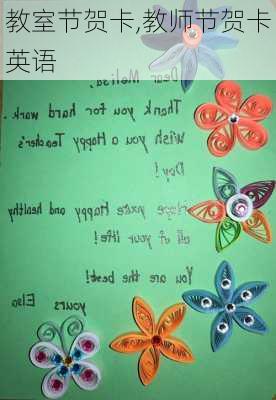 教室节贺卡,教师节贺卡
英语
Dear Melisa,
Thank you for hard work.
Wish you a Happy Teacher's
Day!
Hope you're Happy and healthy
all of your life!
You are the best!
yours
Elsa